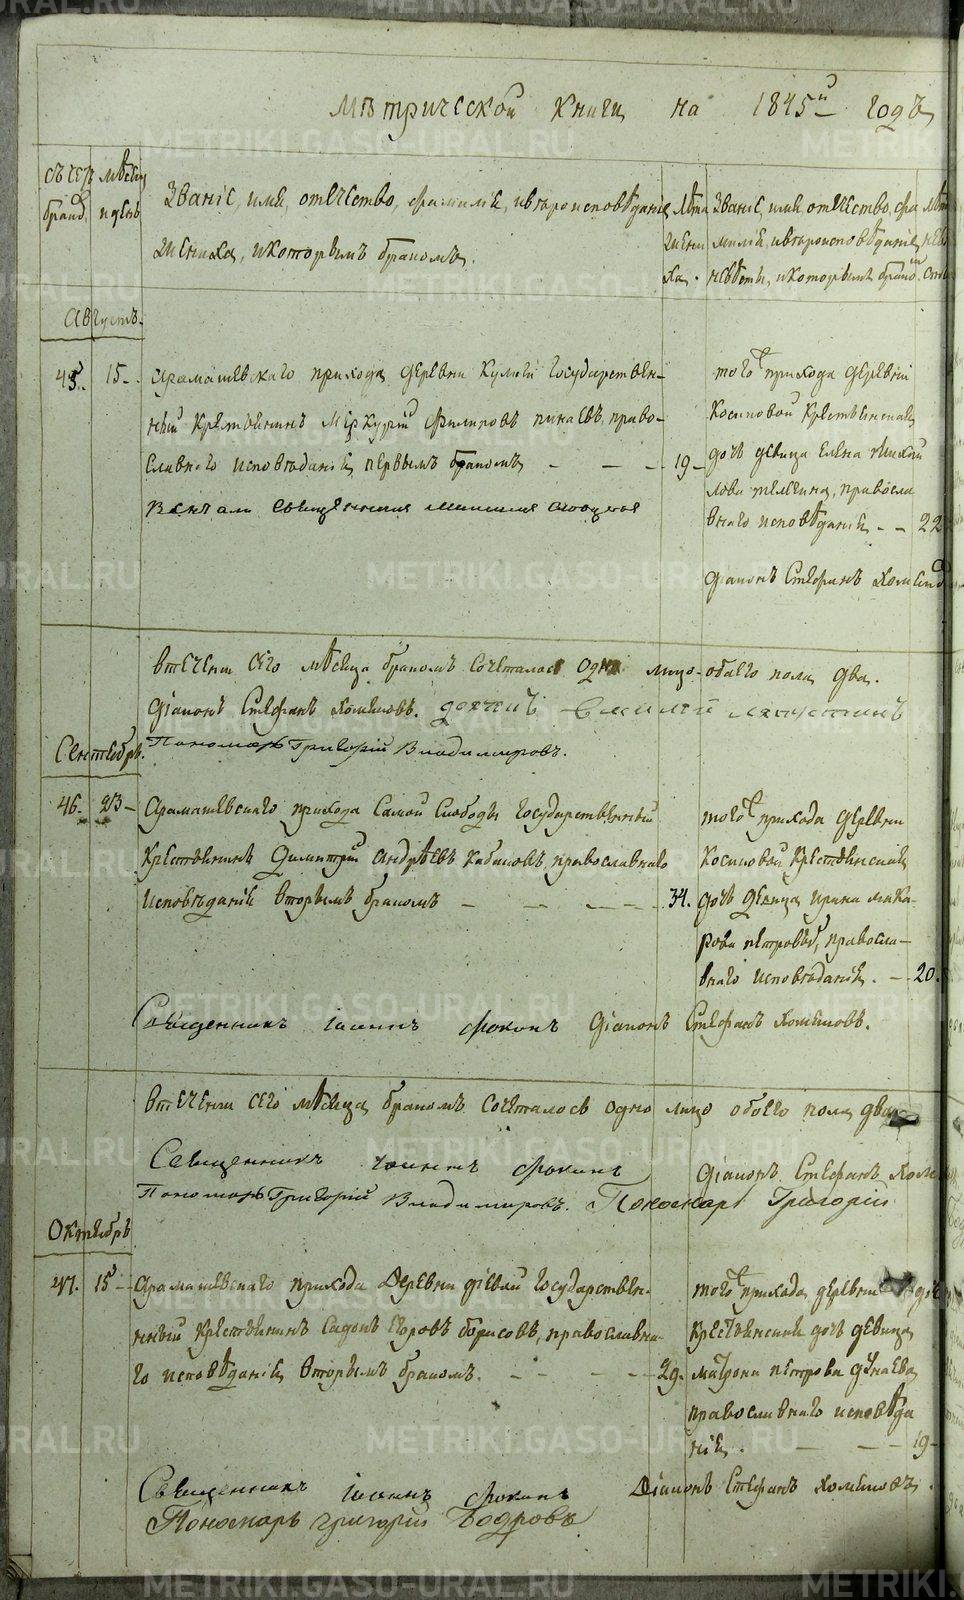 Метрической книги на 1845й годъ
Званіе, имя, отчество, фамилія, и вѣроисповѣданіе
жениха, и которымъ бракомъ.
Лѣта
жени
ха.
Званіе, имя, отчество, фа
милія, и вѣроисповѣданіе
невѣсты, и которымъ бракомъ
Августъ.
45. 15. Арамашевскаго прихода деревни Кулиги государствен-
ный крестьянинъ Меркурій Филиповъ Минаевъ, право-
славнаго исповѣданія первымъ бракомъ 19
тогожъ прихода деревни
Косиковой крестьянская
дочь девица Елена Михай
лова Телегина, правосла
внаго исповѣданія 22
Венчали священникъ
діаконъ Стефанъ
втечени сего мѣсяца бракомъ сочеталось одно лицо обаего пола два.
діаконъ Стефанъ Хомяковъ.
Пономарь Григорій Владимировъ.
Сентябрь.
46. 23 Арамашевскаго прихода самой слободы государственный
крестьянинъ Димитрій Андрѣевъ Кабаковъ, православнаго
исповѣданія вторымъ бракомъ 34.
тогожъ прихода деревни
Косиковой крестьянская
дочь девица Ирина Мака-
рова Петровыхъ, правосла-
внаго исповѣданія. 20.
Священникъ Іоаннъ Фокинъ діаконъ Стефанъ Хомяковъ.
втечени сего мѣсяца бракомъ сочеталось одно лицо обоего пола два
Священникъ Іоаннъ Фокинъ діаконъ Стефанъ
Пономарь Григорій Владимировъ. Пономарь Григорій
Октябрь
47. 15 Арамашевскаго прихода деревни государствен-
ный крестьянинъ Егоровъ Борисовъ, православна-
го исповѣданія вторымъ бракомъ. 29.
тогожъ прихода, деревни
крестьянская дочь девица
Матрона Петрова Дунаева
православнаго исповѣда
нія. 19
Священникъ Іоаннъ Фокинъ Діаконъ Стефанъ Хомяковъ.
Пономарь Григорій Бодровъ
METRIKI.GASO-URAL.RU